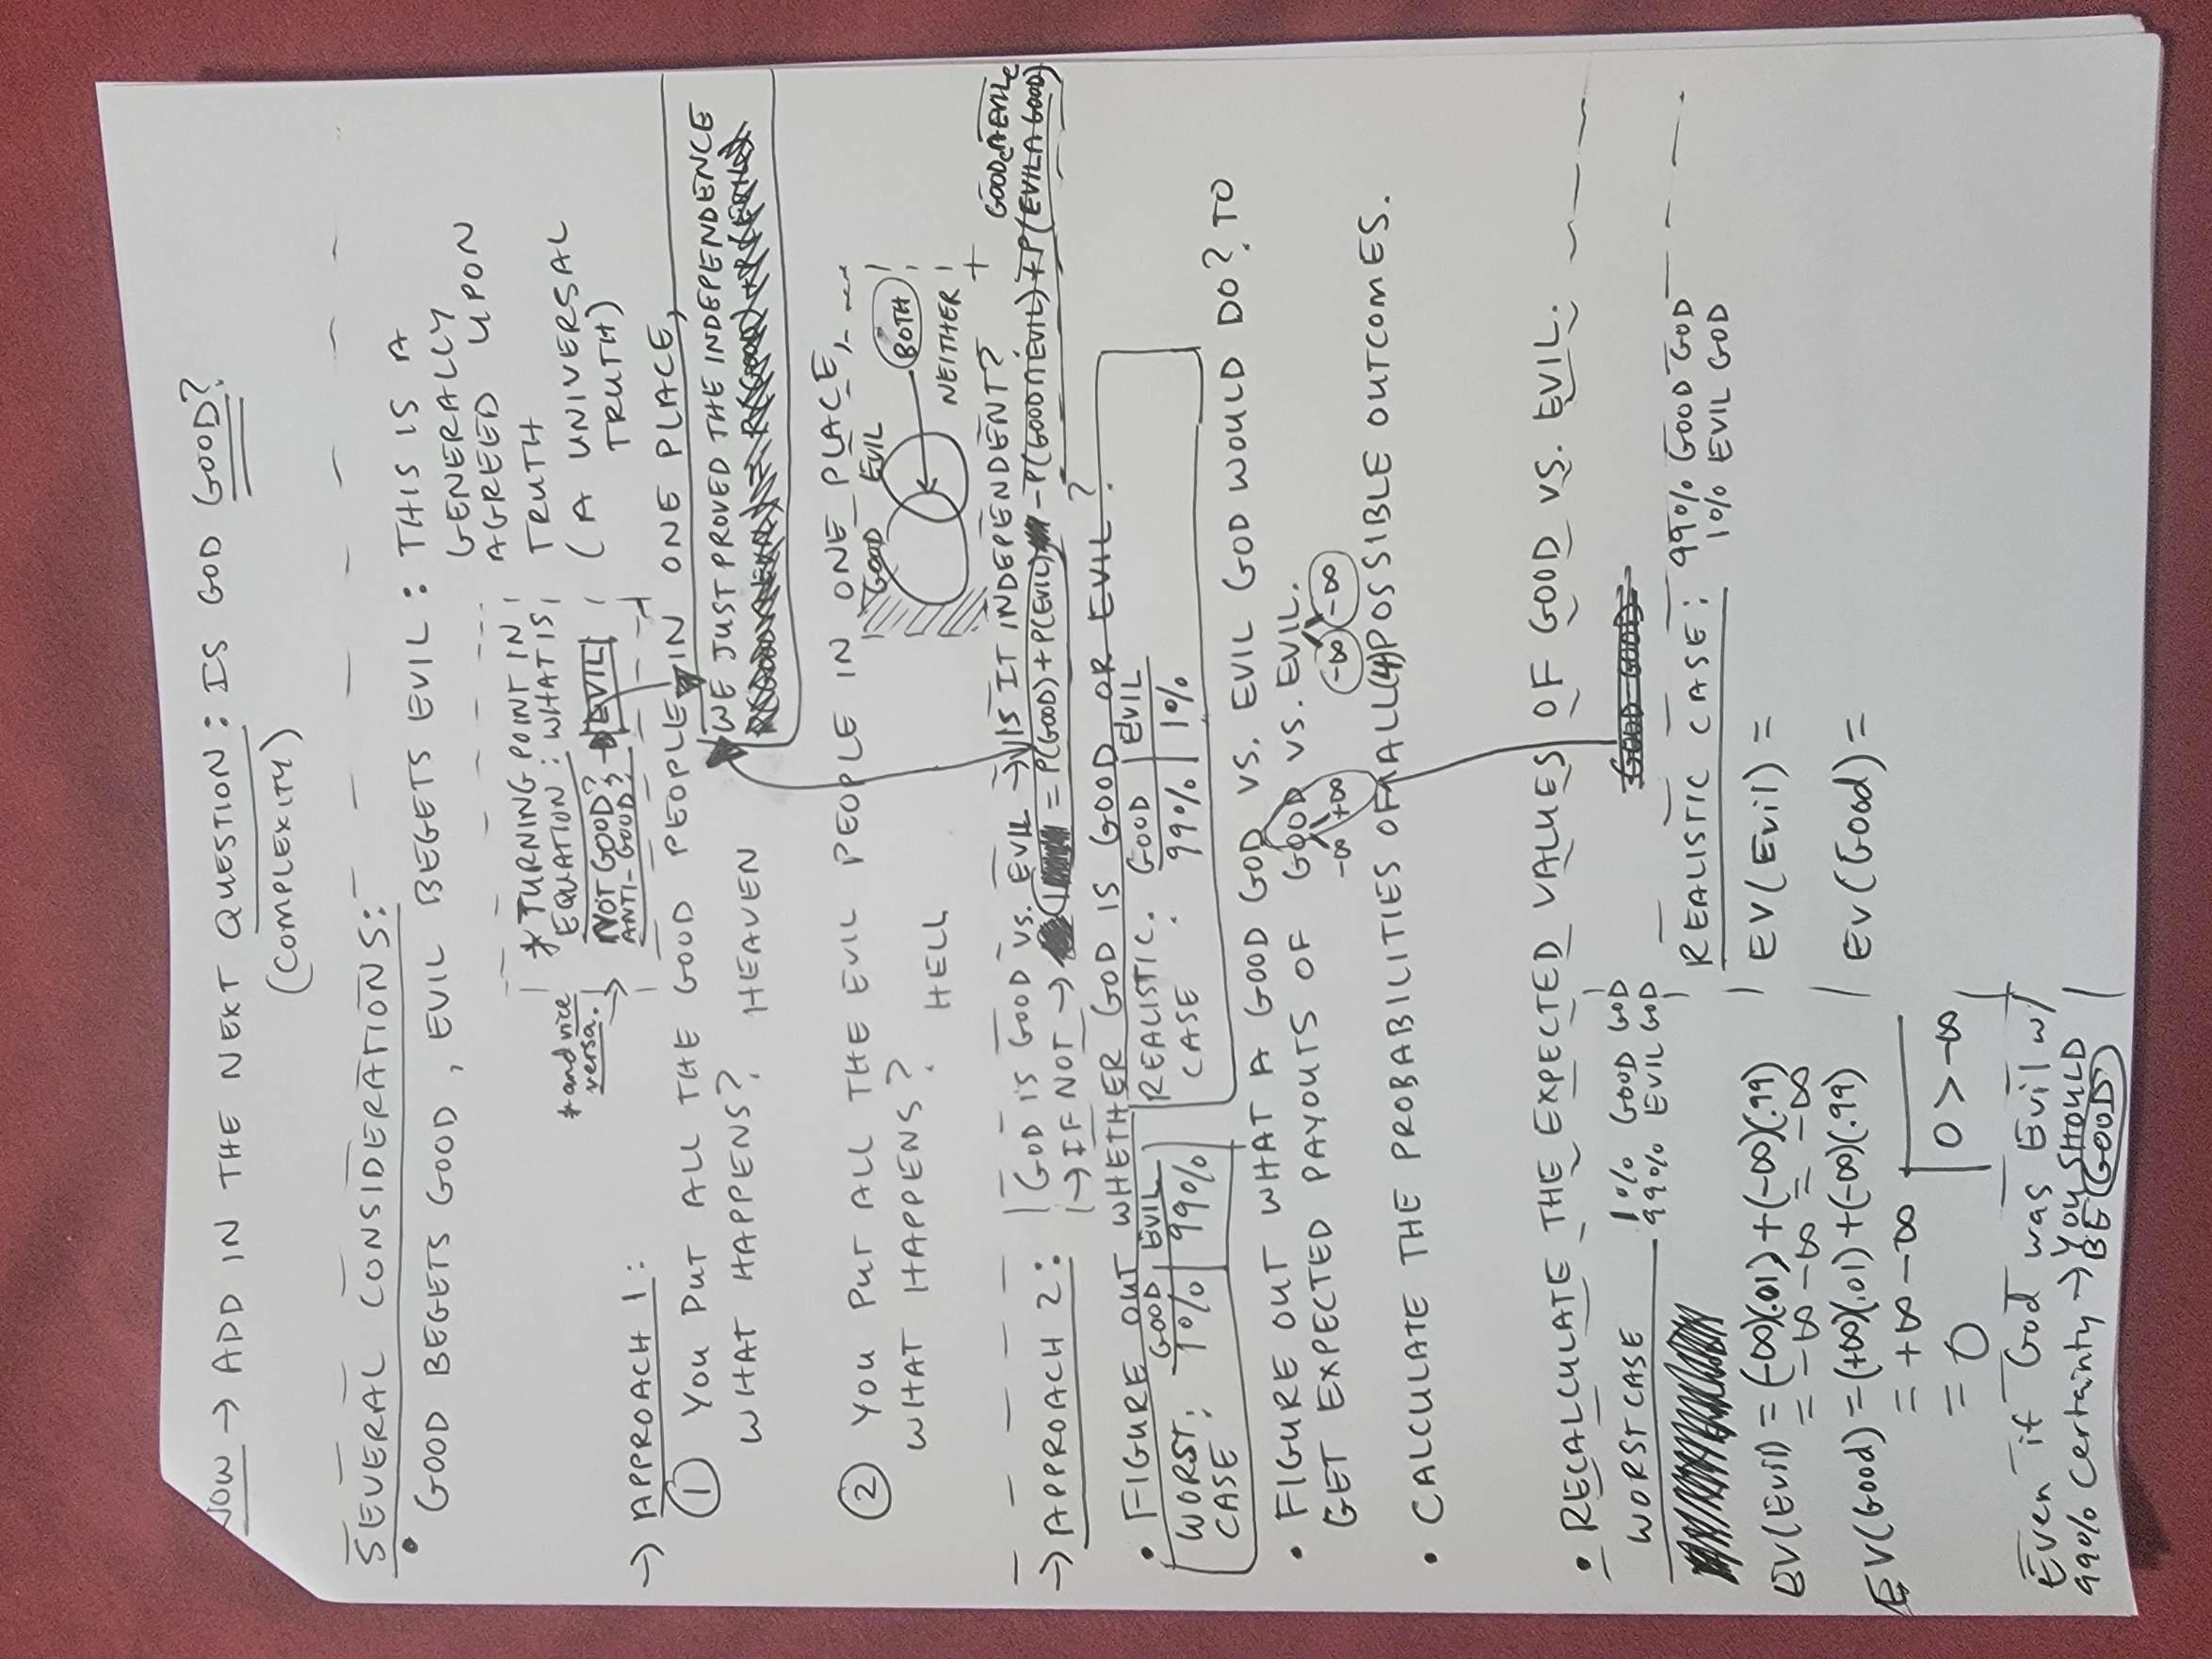 NOW → ADD IN THE NEXT QUESTION: IS GOD GOOD?
(COMPLEXITY)
SEVERAL CONSIDERATIONS:
• GOOD BEGETS GOOD, EVIL BEGETS EVIL: THIS IS A
GENERALLY
AGREED UPON
TRUTH
(A UNIVERSAL
TRUTH)
* TURNING POINT IN
EQUATION: WHAT IS
NOT GOOD? → EVIL
ANTI-GOOD?
* and vice
versa.
→ APPROACH 1:
① YOU PUT ALL THE GOOD PEOPLE IN ONE PLACE,
WHAT HAPPENS? HEAVEN
WE JUST PROVED THE INDEPENDENCE
② YOU PUT ALL THE EVIL PEOPLE IN ONE PLACE,
WHAT HAPPENS?
HELL
GOOD EVIL
BOTH
NEITHER
→ APPROACH 2:
GOD IS GOOD VS. EVIL → IS IT INDEPENDENT?
→ IF NOT → 1 = P(GOOD) + P(EVIL) - P(GOOD∩EVIL) + P(EVIL∩GOOD)
• FIGURE OUT WHETHER GOD IS GOOD OR EVIL?
WORST CASE: GOOD EVIL
1% 99%
REALISTIC CASE: GOOD EVIL
99% 1%
• FIGURE OUT WHAT A GOOD GOD VS. EVIL GOD WOULD DO? TO
GET EXPECTED PAYOUTS OF GOOD VS. EVIL.
-∞ +∞ -∞ -∞
• CALCULATE THE PROBABILITIES OF ALL (4) POSSIBLE OUTCOMES.
• RECALCULATE THE EXPECTED VALUES OF GOOD VS. EVIL.
GOOD GOOD
WORST CASE
1% GOOD GOD
99% EVIL GOD
EV(Evil) = (-∞)(.01) + (-∞)(.99)
= -∞ -∞ = -∞
EV(Good) = (+∞)(.01) + (-∞)(.99)
= +∞ -∞
= 0
0 > -∞
Even if God was Evil w/
99% Certainty → YOU SHOULD
BE GOOD
REALISTIC CASE: 99% GOOD GOD
1% EVIL GOD
EV(Evil) =
EV(Good) =